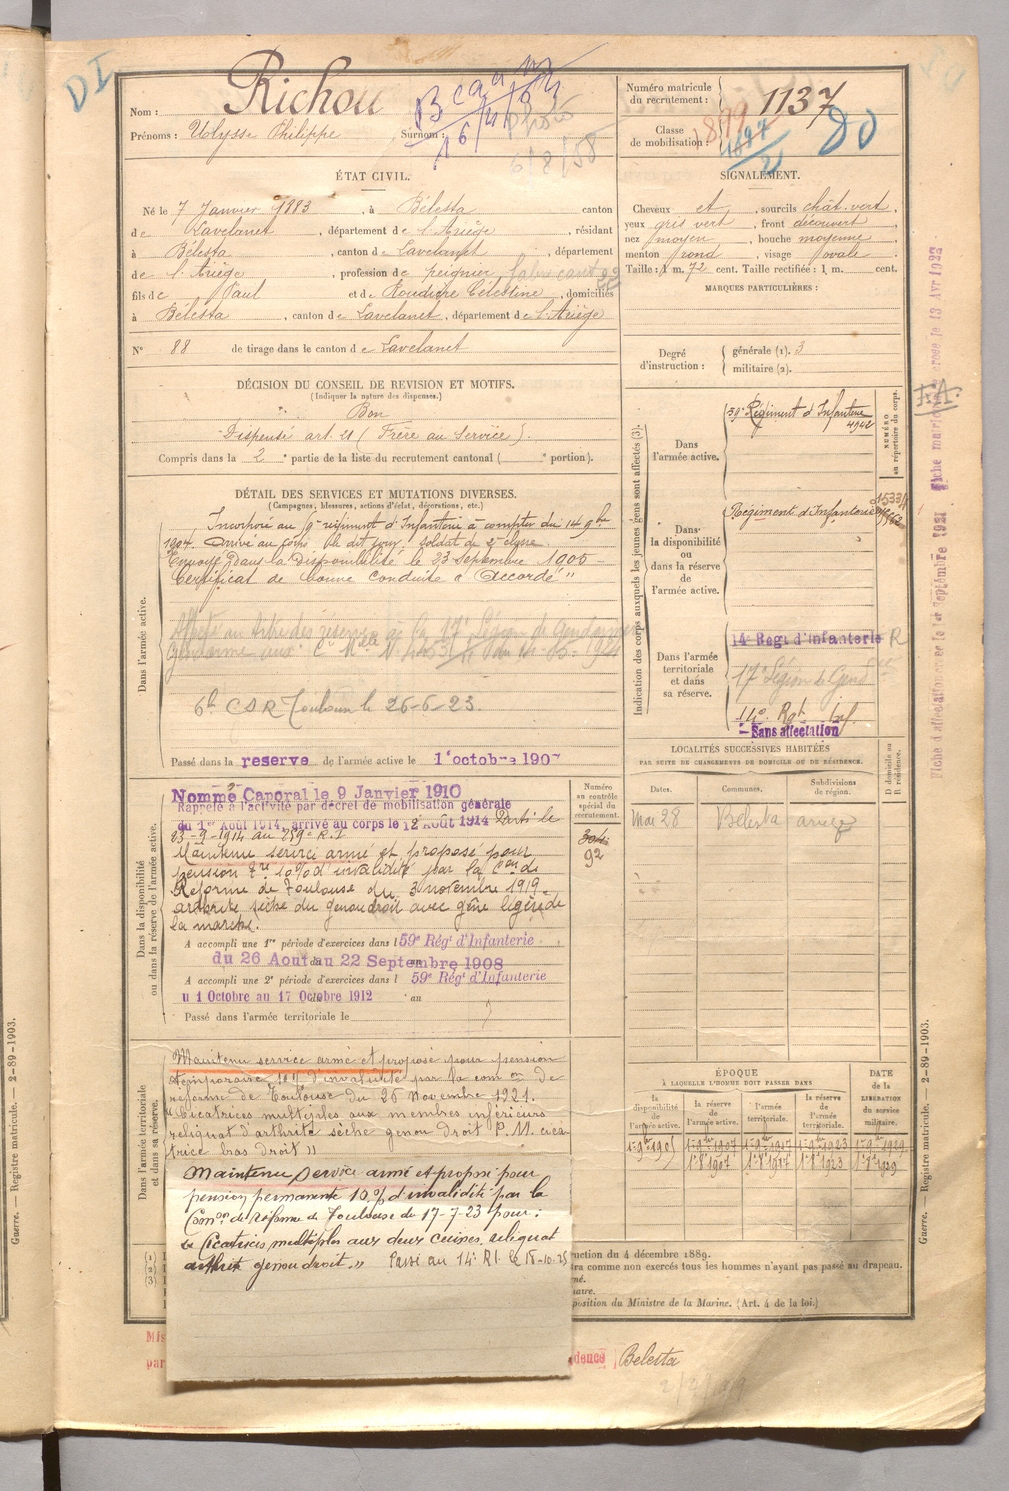 DI
Nom : Richou
Prénoms : Ulysse Philippe Surnom :
16/11/
Photo
6/8/58
Numéro matricule du recrutement : 1137
Classe de mobilisation : 1899
1897
21
ÉTAT CIVIL.
Né le 7 Janvier 1883, à Bélesta canton
de Lavelanet, département de l'Ariège, résidant
à Bélesta, canton de Lavelanet, département
de l'Ariège, profession de peignier fabricant
fils de Paul et de Roudière Célestine, domiciliés
à Bélesta, canton de Lavelanet, département de l'Ariège
N° 88 de tirage dans le canton de Lavelanet
SIGNALEMENT.
Cheveux et, sourcils chât. vert,
yeux gris vert, front découvert,
nez moyen, bouche moyenne,
menton rond, visage ovale.
Taille : 1 m. 72 cent. Taille rectifiée : 1 m. cent.
MARQUES PARTICULIÈRES :
Degré d'instruction : générale (1). 3
militaire (2).
DÉCISION DU CONSEIL DE REVISION ET MOTIFS.
(Indiquer la nature des dispenses.)
Bon
Dispensé art. 21 (Frère au Service).
Compris dans la 2e partie de la liste du recrutement cantonal (e portion).
DÉTAIL DES SERVICES ET MUTATIONS DIVERSES.
(Campagnes, blessures, actions d'éclat, décorations, etc.)
Dans l'armée active.
Incorporé au régiment d'Infanterie à compter du 14 9bre
1904. Arrivé au corps le dit jour. soldat de 2e classe.
Envoyé dans la Disponibilité le 23 Septembre 1905
Certificat de bonne conduite "Accordé"
17e Légion de Gendarmerie
6e CSR Toulouse le 26-6-23.
Passé dans la réserve de l'armée active le 1er octobre 1907
Indication des corps auxquels les jeunes gens sont affectés (3).
NUMÉRO au répertoire du corps.
Dans l'armée active.
59e Régiment d'Infanterie
4942
Dans la disponibilité ou dans la réserve de l'armée active.
Régiment d'Infanterie
Dans l'armée territoriale et dans sa réserve.
14e Regt d'Infanterie R
17e Légion de Gendrie
14e Rgt Inf.
Sans affectation
LOCALITÉS SUCCESSIVES HABITÉES
PAR SUITE DE CHANGEMENTS DE DOMICILE OU DE RÉSIDENCE.
Dates. Communes. Subdivisions de région. D domicile ou R résidence.
Mai 28 Bélesta ariège
Dans la disponibilité ou dans la réserve de l'armée active.
Nommé Caporal le 9 Janvier 1910
Rappelé à l'activité par décret de mobilisation générale
du 1er Août 1914, arrivé au corps le 12 Août 1914 Parti le
23-9-1914 au 259e R.I
Maintenu service armé et proposé pour
pension Tre 10% d'invalidité par la Con de
Réforme de Toulouse du 3 novembre 1919
arthrite sèche du genou droit avec gêne légère de
la marche.
A accompli une 1re période d'exercices dans l 59e Régt d'Infanterie
du 26 Aout au 22 Septembre 1908
A accompli une 2e période d'exercices dans l 59e Régt d'Infanterie
u 1 Octobre au 17 Octobre 1912 au
Passé dans l'armée territoriale le
Numéro au contrôle spécial du recrutement.
92
Dans l'armée territoriale et dans sa réserve.
Maintenu service armé et proposé pour pension
temporaire 10% d'invalidité par la comon de
réforme de Toulouse du 26 Novembre 1921.
"Cicatrices multiples aux membres inférieurs
reliquat d'arthrite sèche genou droit P.M. cica-
trice bras droit"
Maintenu service armé et proposé pour
pension permanente 10% d'invalidité par la
Comon de réforme de Toulouse du 17-7-23 pour :
Cicatrices multiples aux deux cuisses, reliquat
arthrite genou droit." Passé au 14e R.I. le 18-10-25
ÉPOQUE
À LAQUELLE L'HOMME DOIT PASSER DANS
la disponibilité de l'armée active. la réserve de l'armée active. l'armée territoriale. la réserve de l'armée territoriale.
DATE de la LIBÉRATION du service militaire.
1er 9bre 1905 1er 9bre 1907 1er 9bre 1917 1er 9bre 1923 1er 9bre 1929
1er 8bre 1907 1er 8bre 1917 1er 8bre 1923 1er 8bre 1929
(1)
(2)
(3)
ruction du 4 décembre 1889.
ra comme non exercés tous les hommes n'ayant pas passé au drapeau.
né.
naire.
position du Ministre de la Marine. (Art. 4 de la loi.)
Mis
par
dence Belesta
Fiche d'affectation le 1er Septembre 1921 Fiche matricule le 13 Avr 1922
Guerre. — Registre matricule. — 2-89-1903.
Guerre. — Registre matricule. — 2-89-1903.